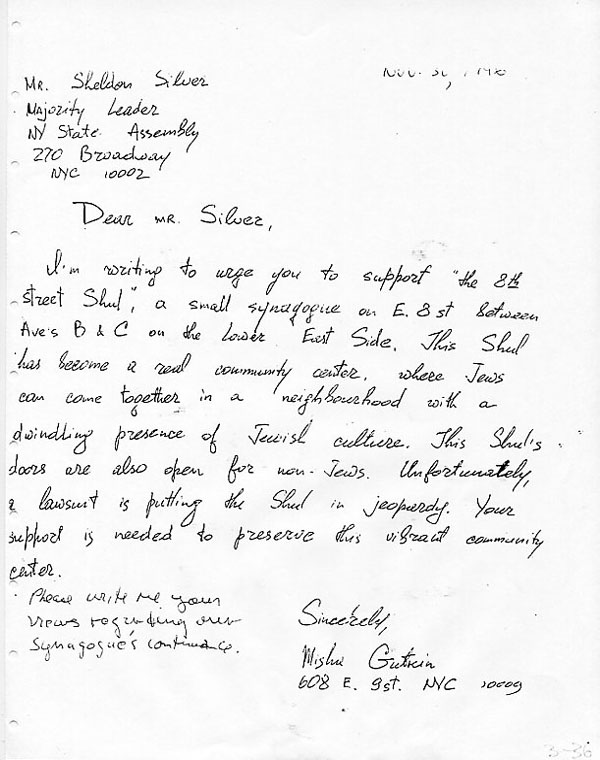 Nov. 30, 1996
Mr. Sheldon Silver
Majority Leader
NY State Assembly
270 Broadway
NYC 10002
Dear Mr. Silver,
I'm writing to urge you to support "the 8th
street Shul", a small synagogue on E. 8 st between
Ave's B & C on the Lower East Side. This Shul
has become a real community center, where Jews
can come together in a neighbourhood with a
dwindling presence of Jewish culture. This Shul's
doors are also open for non-Jews. Unfortunately,
a lawsuit is putting the Shul in jeopardy. Your
support is needed to preserve this vibrant community
center.
Please write me your
views regarding our
Synagogue's continuance.
Sincerely,
Misha
608 E. 9st. NYC 10009
3-36